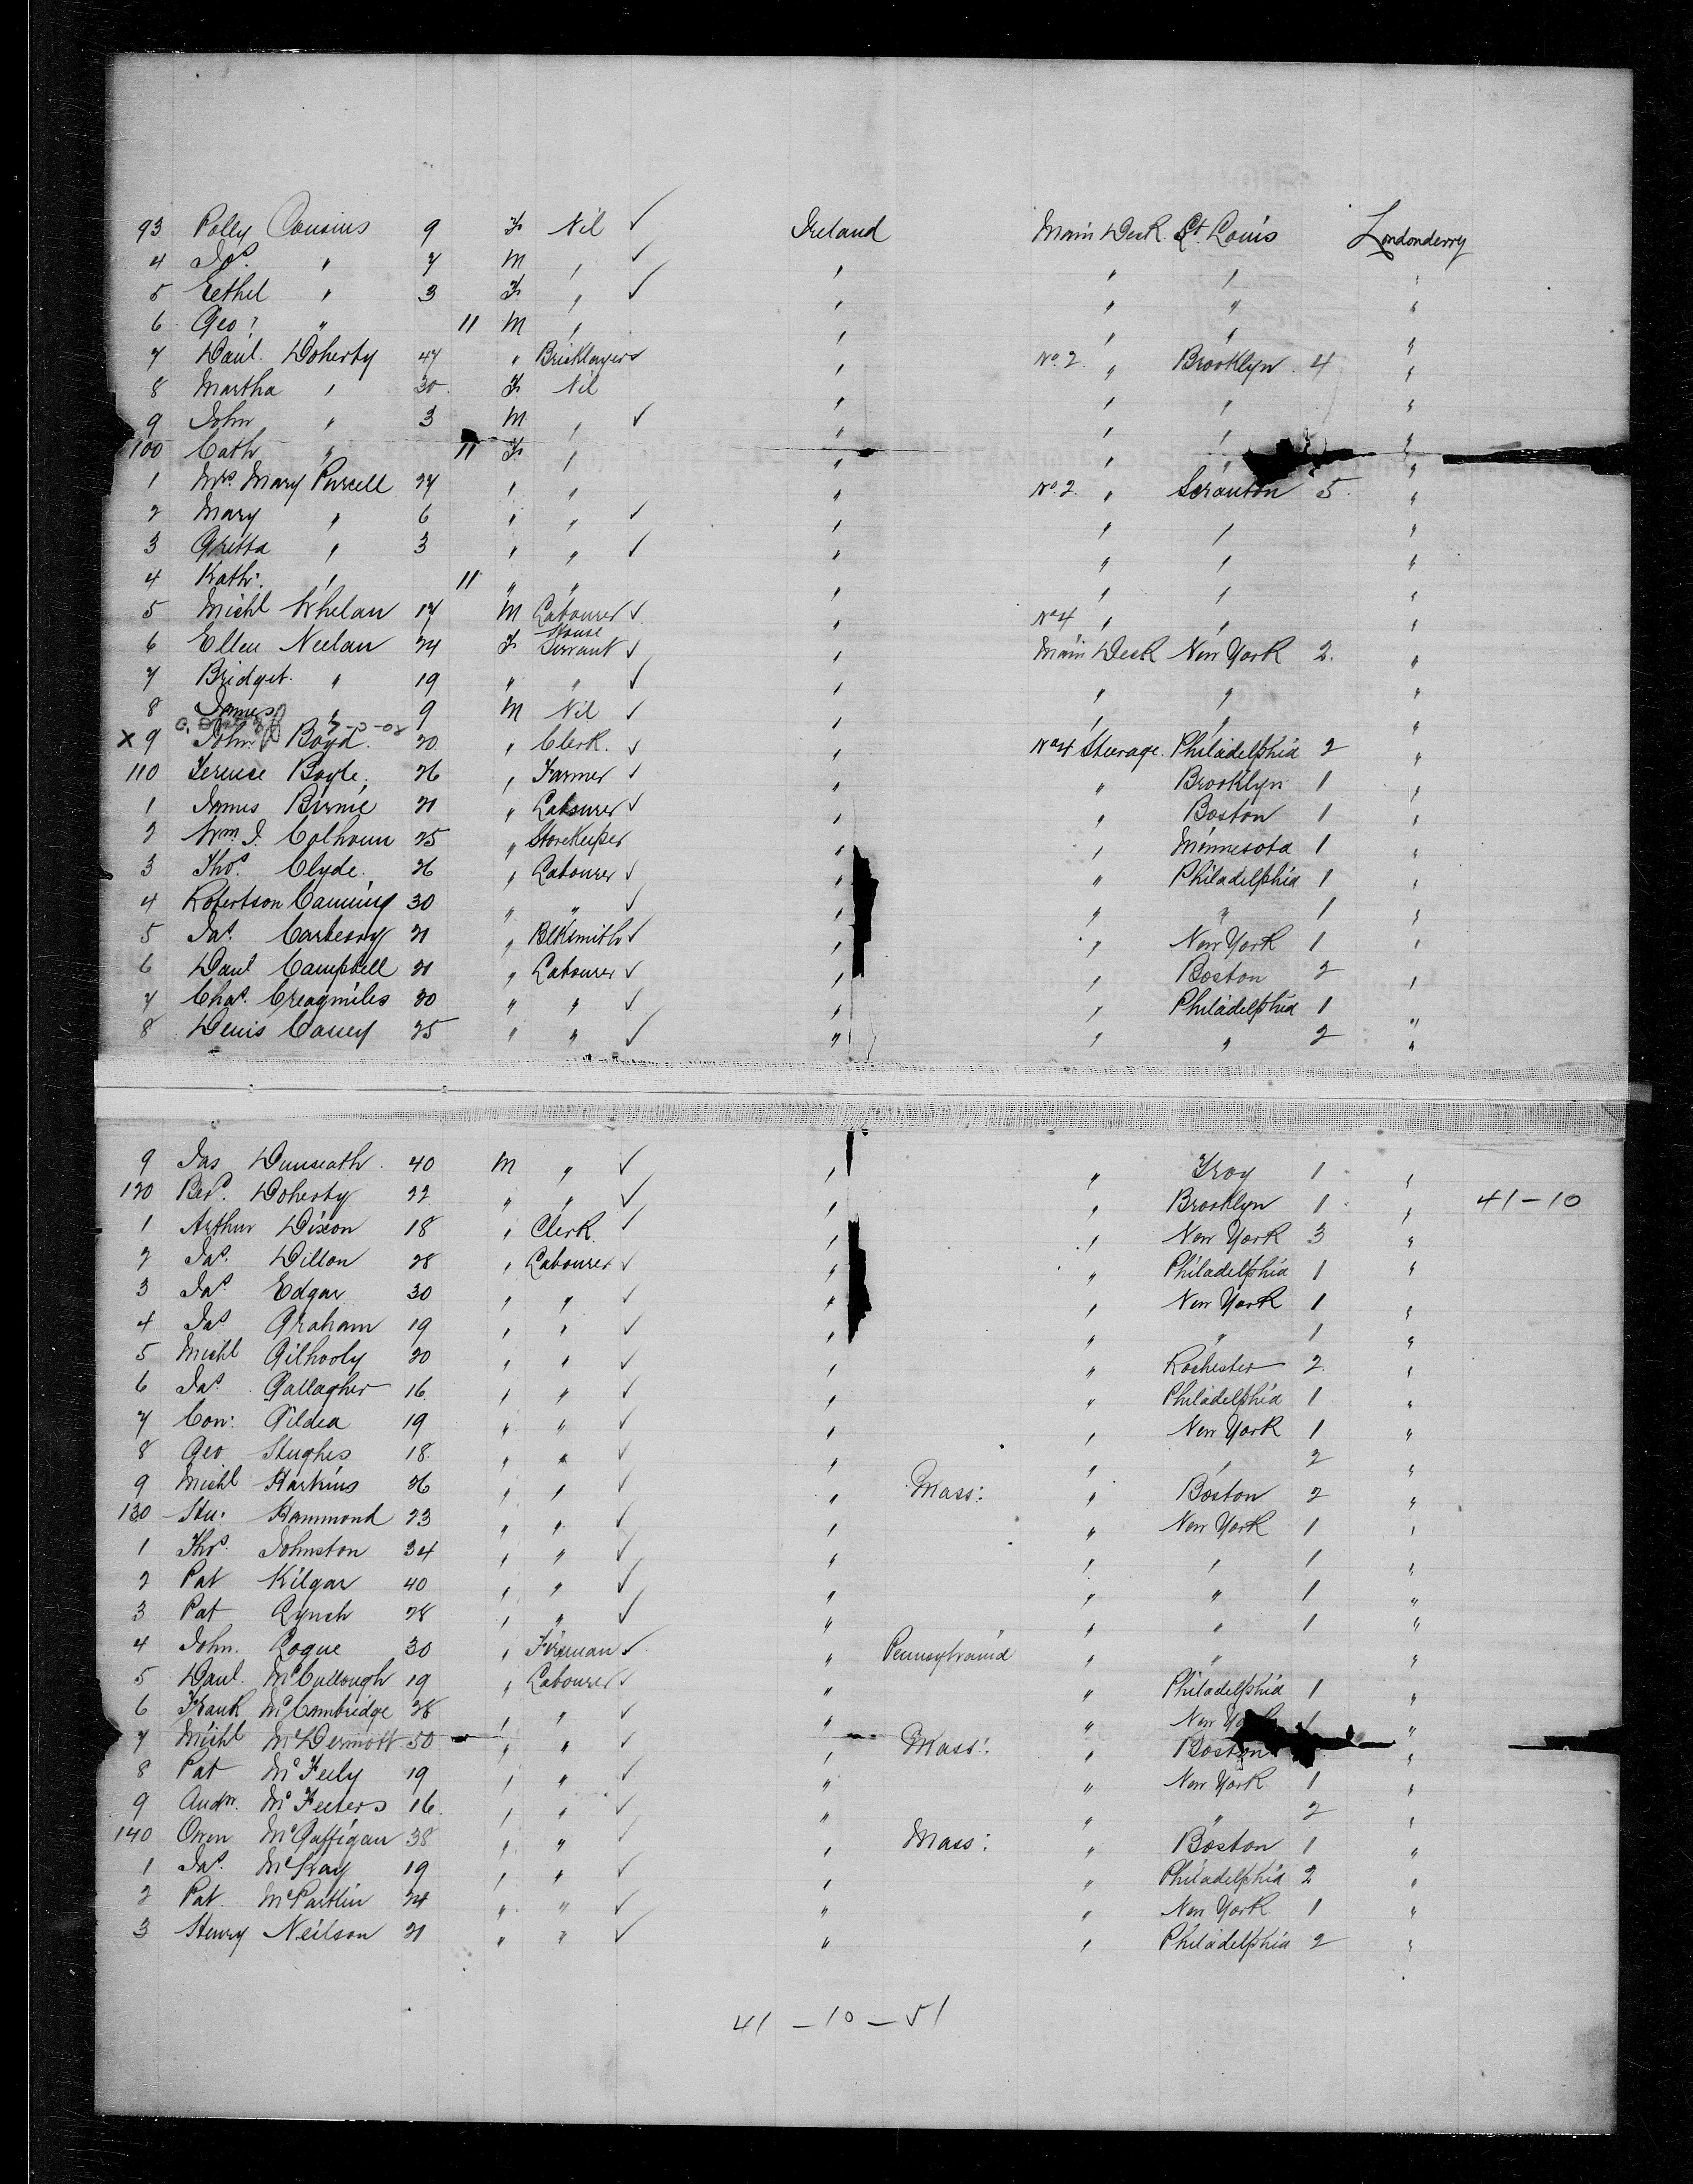 93 Polly Cousins 9 F Nil ✓ Ireland Main Deck St. Louis Londonderry
4 Jas. " 7 M " ✓ " " " "
5 Eethel " 3 F " ✓ " " " "
6 Geo: " 11 M " " " " "
7 Danl. Doherty 47 " Bricklayer ✓ " No. 2 " Brooklyn 4 "
8 Martha " 30 F Nil " " " "
9 John " 3 M " ✓ " " " "
100 Cath " 11 F " " " " "
1 Mrs. Mary Purcell 27 " " " No. 2 " Scranton 5 "
2 Mary " 6 " " ✓ " " " "
3 Gretta " 3 " " ✓ " " " "
4 Kath: " 11 " " " " " "
5 Michl Whelan 17 M Labourer ✓ " No 4 " " "
6 Ellen Neelan 24 F House Servant ✓ " Main Deck New York 2 "
7 Bridget " 19 " " ✓ " " " "
8 James " 9 M Nil ✓ " " " "
X 9 John Boyd 20 " Clerk ✓ " No 4 Steerage Philadelphia 2 "
110 Terence Boyle 26 " Farmer ✓ " " Brooklyn 1 "
1 James Birnie 21 " Labourer ✓ " " Boston 1 "
2 Wm. J. Colhoun 25 " Storekeeper " " Minnesota 1 "
3 Thos. Clyde 26 " Labourer ✓ " " Philadelphia 1 "
4 Robertson Canning 30 " " ✓ " " " 1 "
5 Jas. Carberry 21 " Blksmith ✓ " " New York 1 "
6 Danl Campbell 21 " Labourer ✓ " " Boston 2 "
7 Chas. Creagmiles 20 " " ✓ " " Philadelphia 1 "
8 Denis Carrey 25 " " ✓ " " " 2 "
9 Jas Dunseath 40 M " ✓ " " Troy 1 "
120 Bed. Doherty 22 " " ✓ " " Brooklyn 1 " 41-10
1 Arthur Dixon 18 " Clerk ✓ " " New York 3 "
2 Jas. Dillon 28 " Labourer ✓ " " Philadelphia 1 "
3 Jas. Edgar 30 " " ✓ " " New York 1 "
4 Jas Graham 19 " " ✓ " " " 1 "
5 Michl Gilhooly 20 " " ✓ " " Rochester 2 "
6 Jas. Gallagher 16 " " ✓ " " Philadelphia 1 "
7 Con: Gildea 19 " " ✓ " " New York 1 "
8 Geo Hughes 18 " " ✓ " " " 2 "
9 Michl Harkins 26 " " ✓ " Mass: " Boston 2 "
130 Hu: Hammond 23 " " ✓ " " New York 1 "
1 Thos. Johnston 34 " " ✓ " " " 1 "
2 Pat Kilgar 40 " " ✓ " " " 1 "
3 Pat Lynch 28 " " ✓ " " " 1 "
4 John Logue 30 " Fireman ✓ " Pennsylvania " " "
5 Danl. McCullough 19 " Labourer ✓ " " Philadelphia 1 "
6 Frank McCambridge 28 " " ✓ " " New York 1 "
7 Michl McDermott 50 " " ✓ " Mass: " Boston "
8 Pat McFeely 19 " " ✓ " " New York 1 "
9 Andw. McFeeters 16 " " ✓ " " " 2 "
140 Owen McGaffigan 38 " " ✓ " Mass: " Boston 1 "
1 Jas. McKay 19 " " ✓ " " Philadelphia 2 "
2 Pat. McPartlin 24 " " ✓ " " New York 1 "
3 Henry Neilson 21 " " ✓ " " Philadelphia 2 "
41-10-51